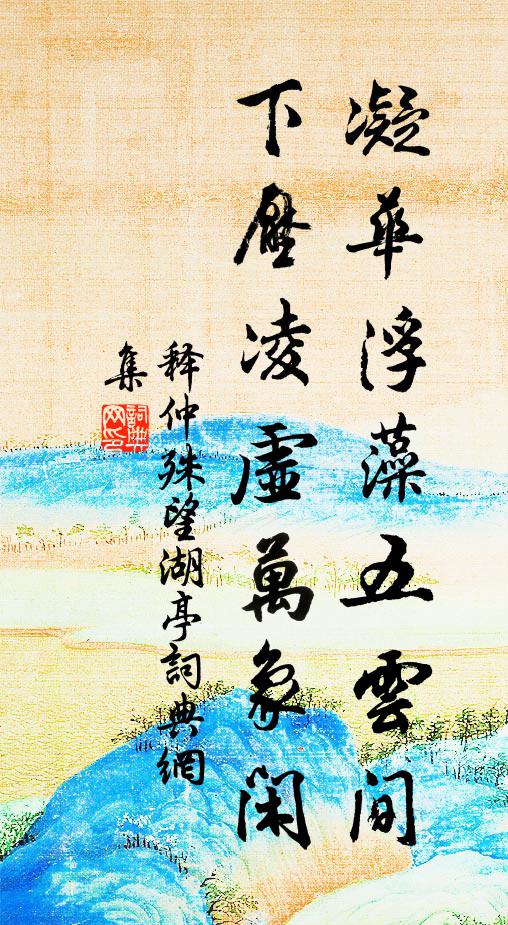 凝華浮藻五雲间
下壓凌虛萬象闲
释仲殊望湖亭詞典網
集
詞典
网印